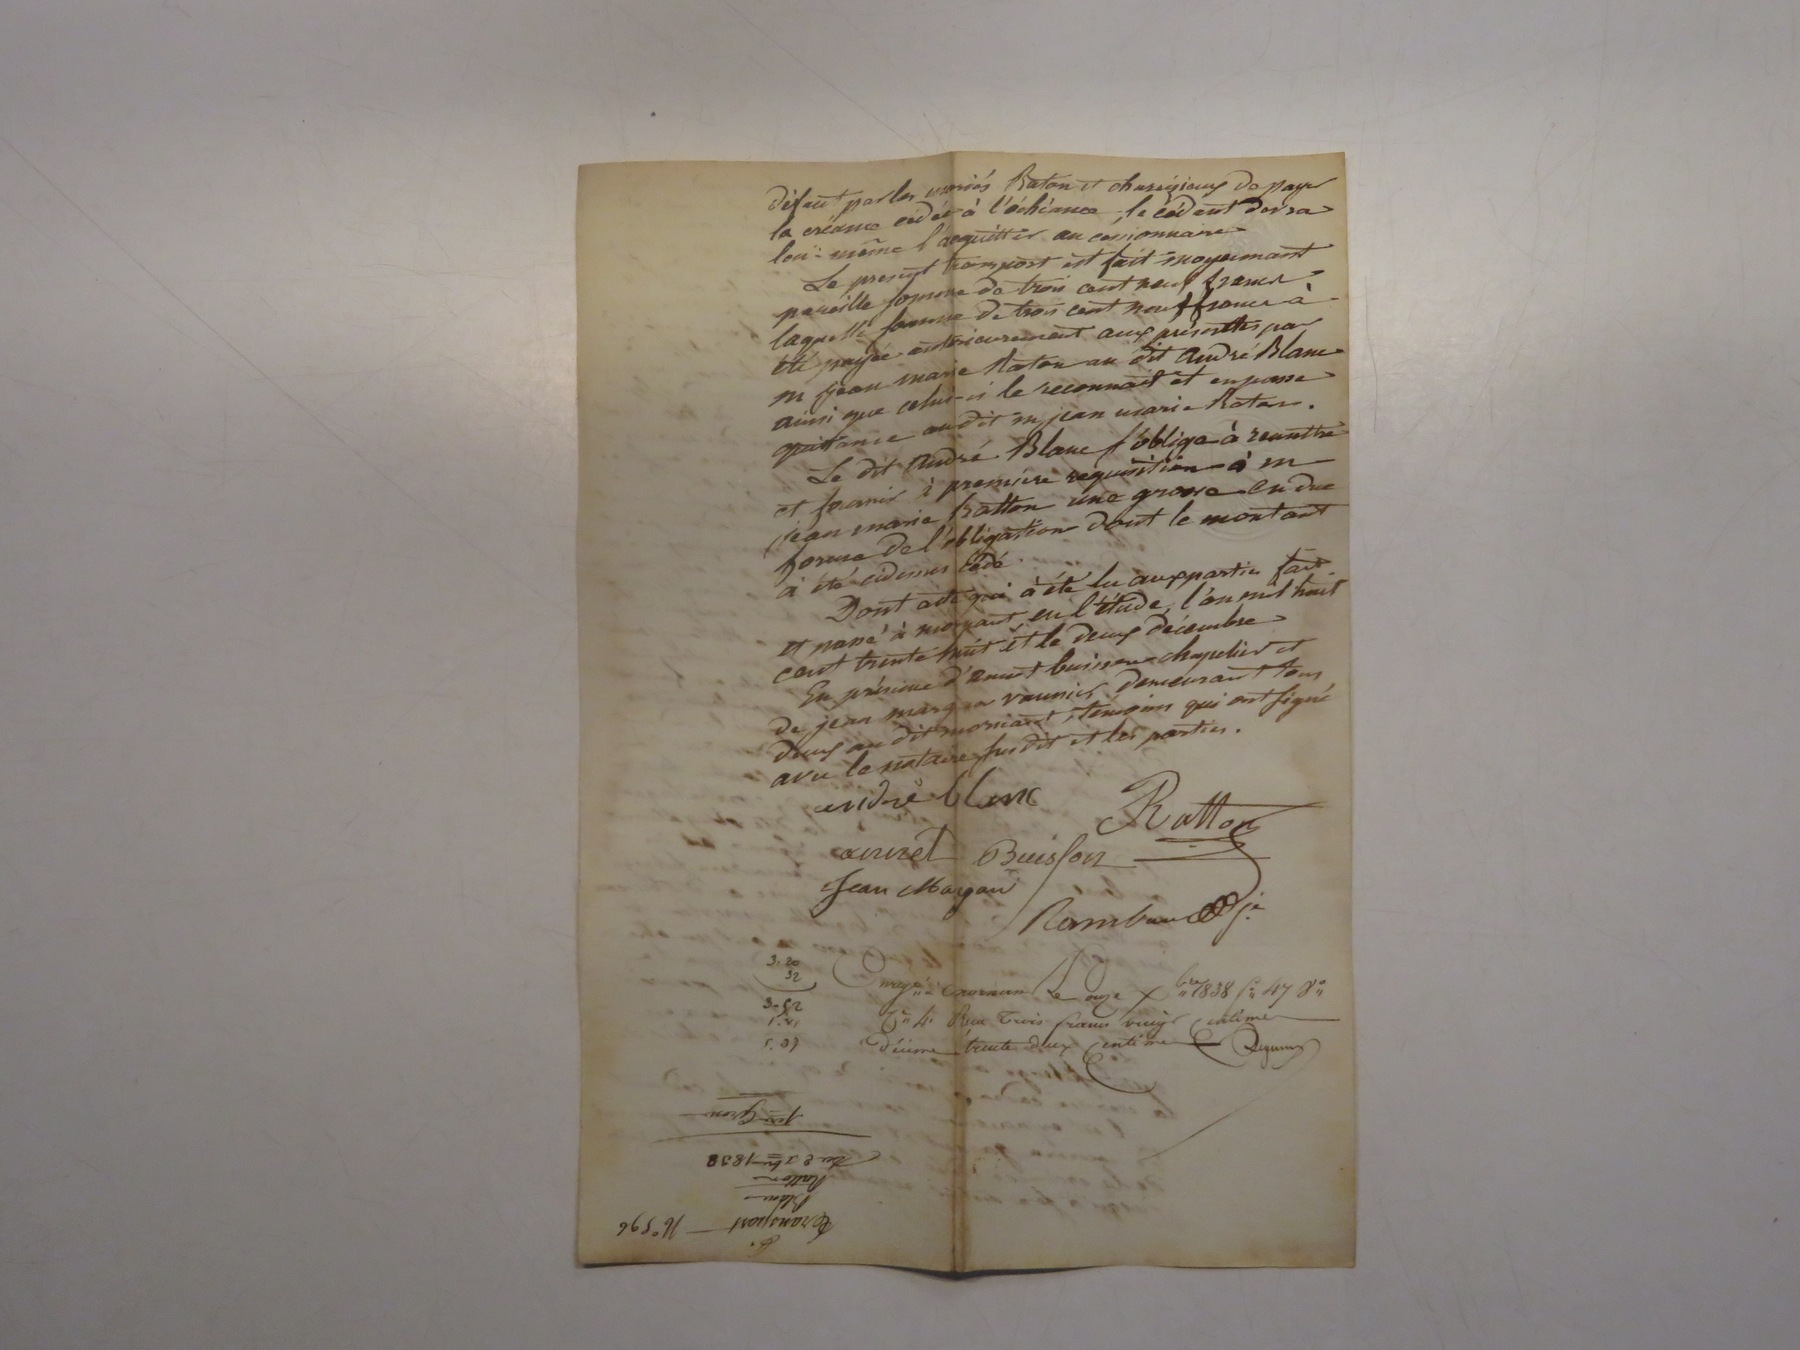 défaut par les mariés Raton et de payer
la créance cédée à l'échéance, le cédant devra
lui-même l'acquitter au cessionnaire
Le present transport est fait moyennant
pareille somme de trois cent neuf francs
laquelle somme de trois cent neuf francs à
été payée antérieurement aux présentes par
m jean marie Raton au dit André Blanc
ainsi que celui-ci le reconnait et en passe
quittance audit m jean marie Raton.
Le dit André Blanc s'oblige à remettre
et fournir à première requisition à m
jean marie Ratton une grosse en due
forme de l'obligation dont le montant
à été cidessus cédé
Dont acte qui à été lu aux parties fait
et passé à mornant en l'étude, l'an mil huit
cent trente huit et le deux décembre
En présence d'annet buisson chapelier et
de jean margan vannier demeurant tous
deux au dit mornant, témoins qui ont signé
avec le notaire susdit et les parties.
andré blanc
Ratton
annet Buisson
Jean Margan
Rambaud
3.20
32
3-52
Le onze Xbre 1838 fo 47 Vo
Co 4. Reçu Trois francs vingt centimes
décime trente deux centimes
1re Grosse
du 2 xbre 1838
Ratton
Blanc
Transport
No 596